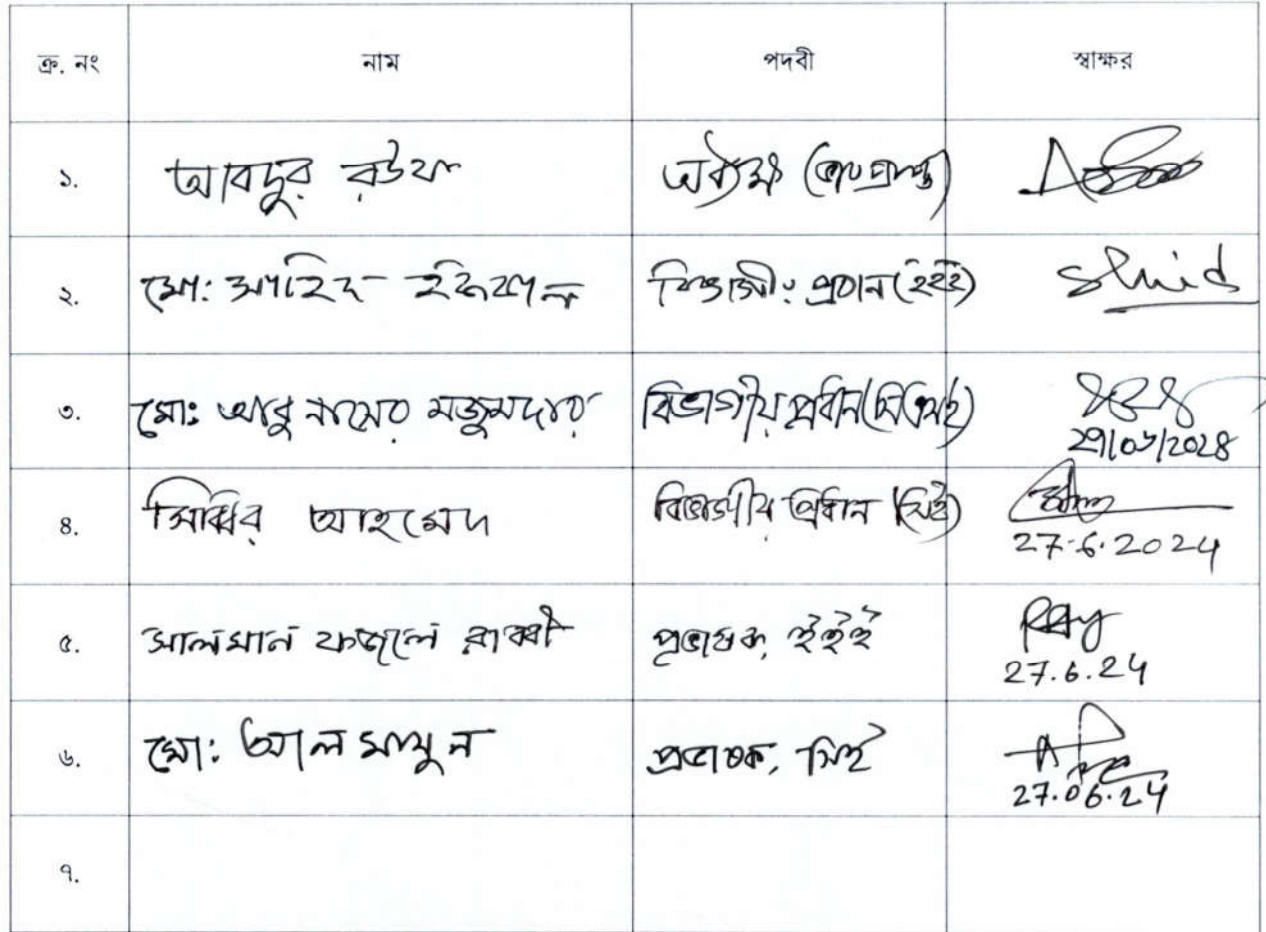 ক্র. নং নাম পদবী স্বাক্ষর
১. আবদুর রউফ অধ্যক্ষ (ভারপ্রাপ্ত)
২. মো: জাহিদ ইকবাল বিভাগী: প্রধান (ইইই)
৩. মো: আবু নাসের মজুমদার বিভাগীয় প্রধান (সিএসই)
২৭/০৬/২০২৪
৪. সাব্বির আহমেদ বিভাগীয় প্রধান (সিই)
27.6.2024
৫. সালমান ফজলে রাব্বী প্রভাষক, ইইই
27.6.24
৬. মো: আল মামুন প্রভাষক, সিই
27.06.24
৭.